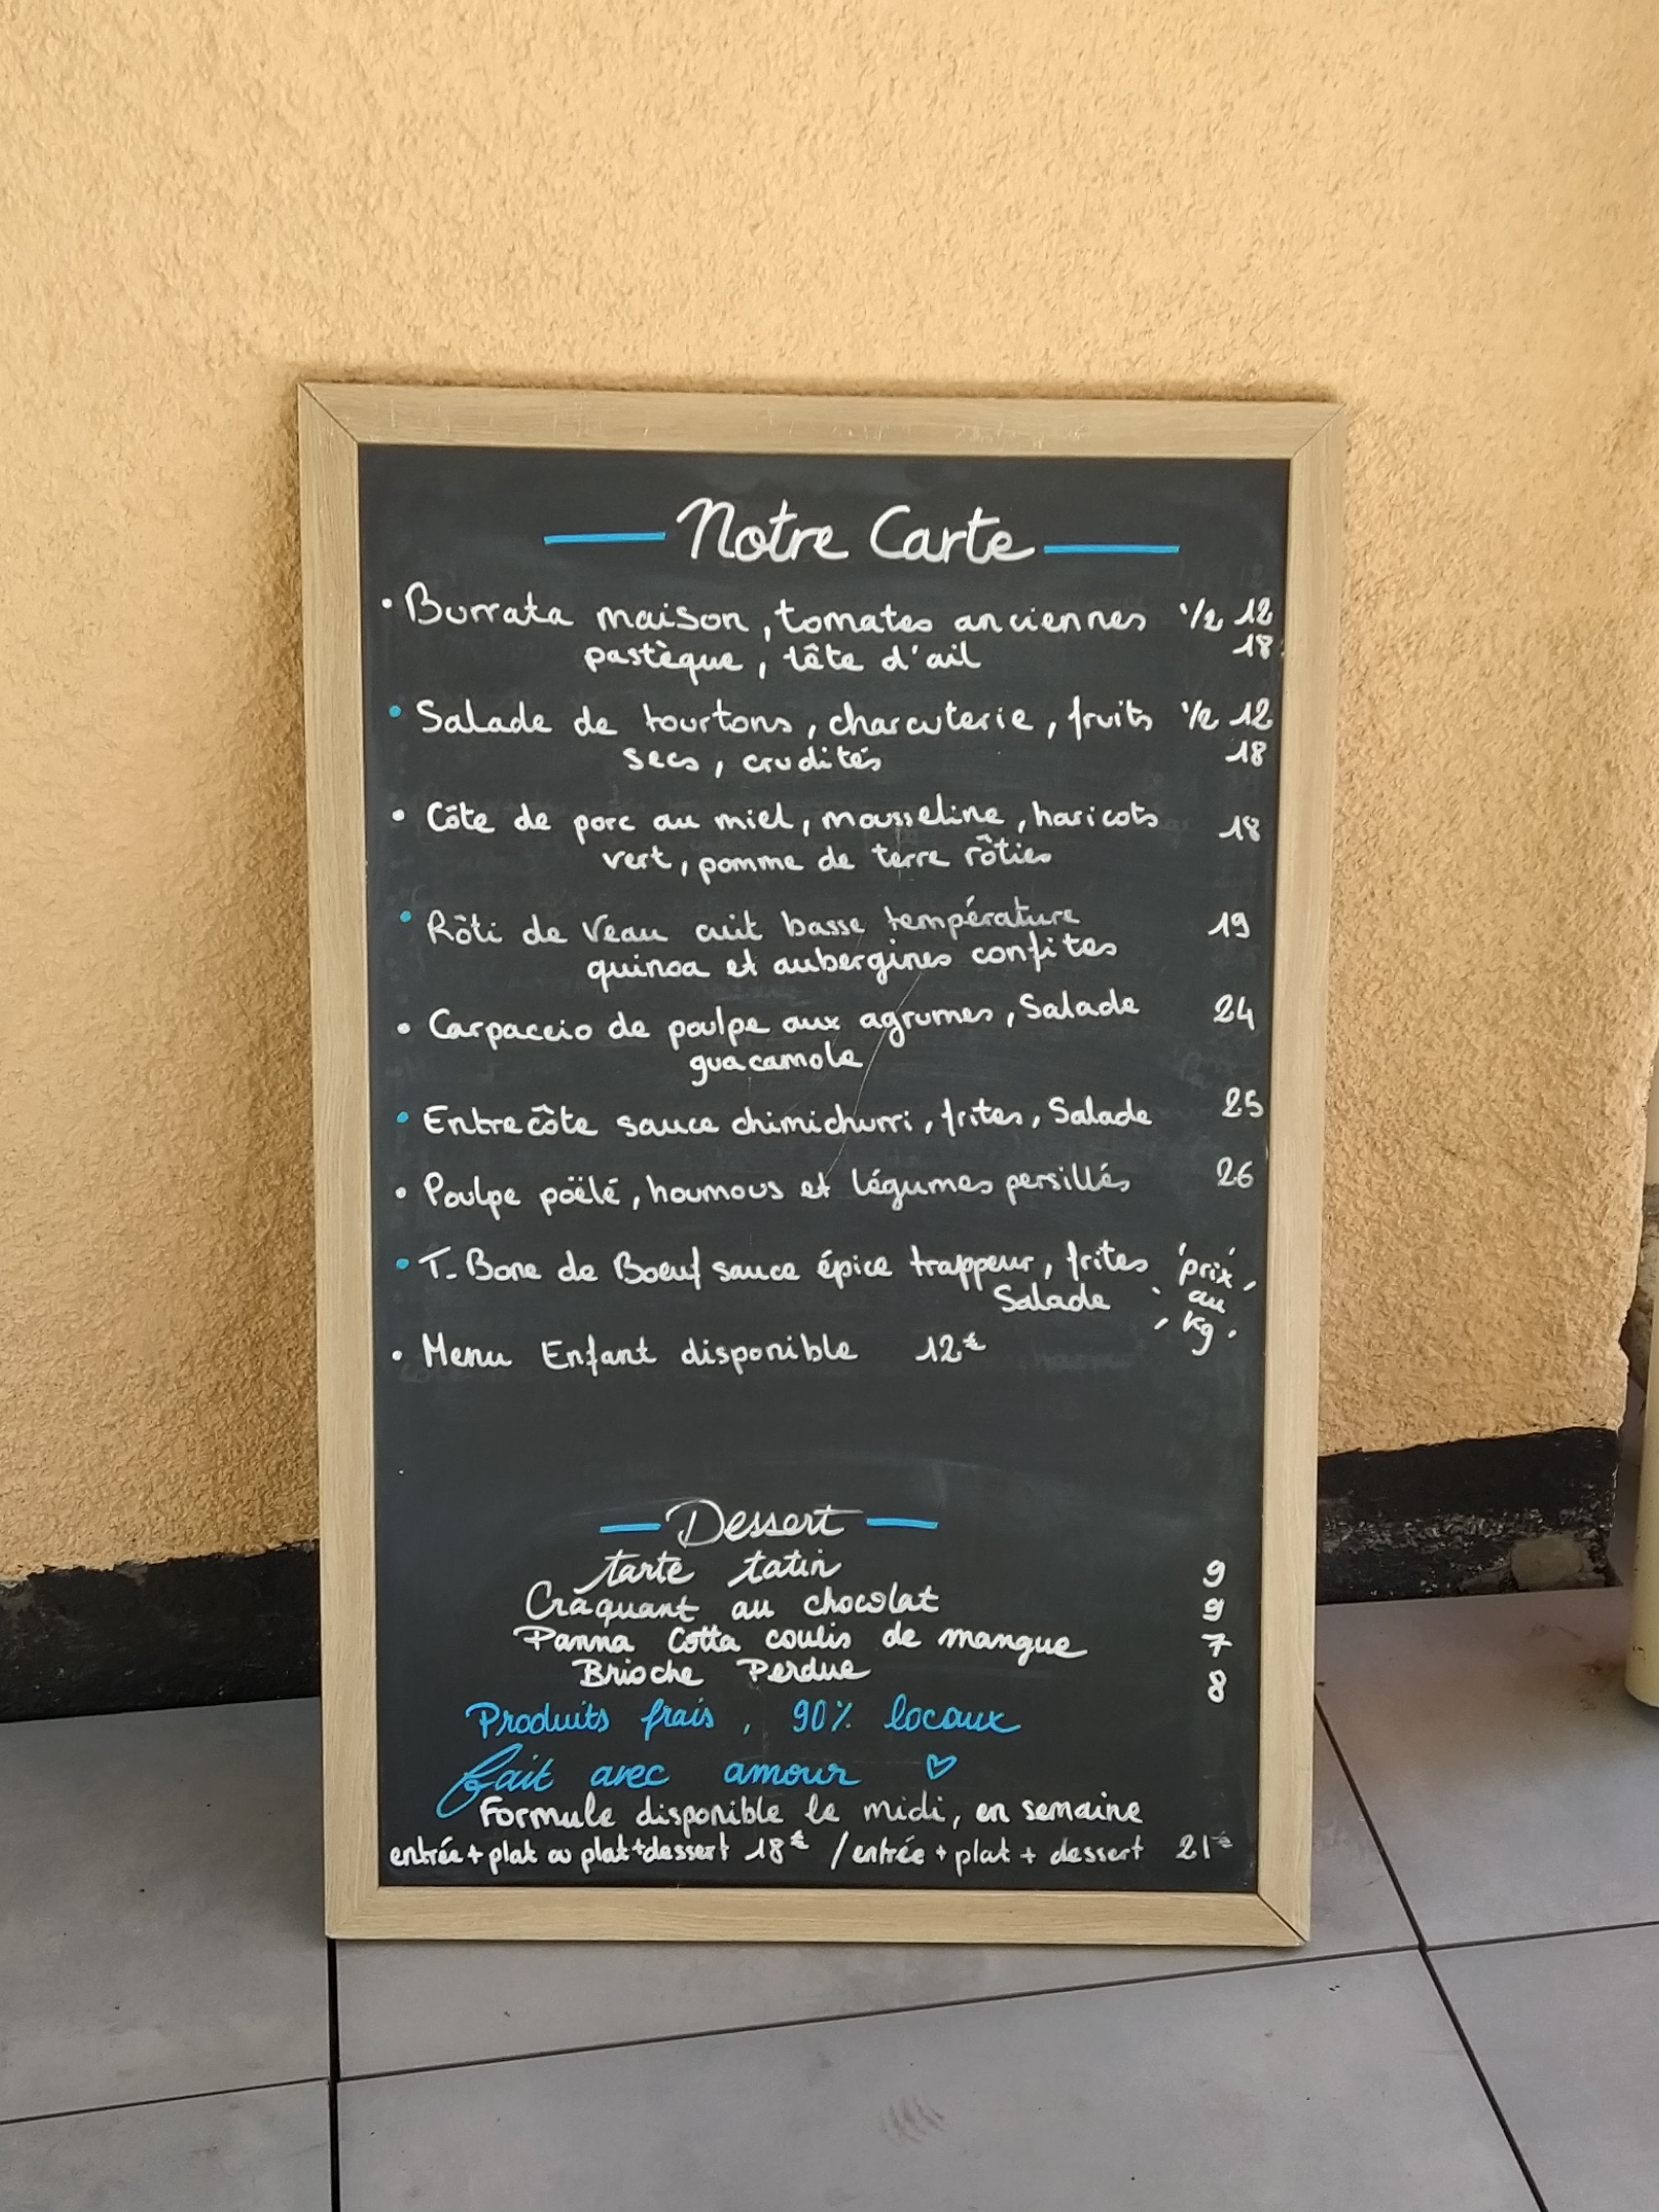 Notre Carte
• Burrata maison, tomates anciennes 1/2 12
pastèque, tête d'ail 18
• Salade de tourtons, charcuterie, fruits 1/2 12
secs, crudités 18
• Côte de porc au miel, mousseline, haricots 18
vert, pomme de terre rôties
• Rôti de Veau cuit basse température 19
quinoa et aubergines confites
• Carpaccio de poulpe aux agrumes, Salade 24
guacamole
• Entrecôte sauce chimichurri, frites, Salade 25
• Poulpe pöêlé, houmous et légumes persillés 26
• T-Bone de Boeuf sauce épice trappeur, frites prix
Salade au
kg
• Menu Enfant disponible 12€
Dessert
tarte tatin 9
Craquant au chocolat 9
Panna Cotta coulis de mangue 7
Brioche Perdue 8
Produits frais, 90% locaux
fait avec amour ♡
Formule disponible le midi, en semaine
entrée + plat ou plat+dessert 18€ / entrée + plat + dessert 21€